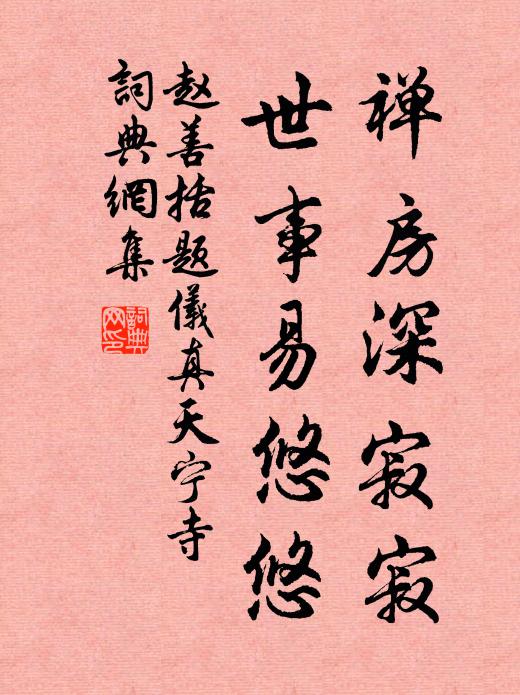 禅房深寂寂
世事易悠悠
赵善括题儀真天宁寺
詞典網集
詞典网印